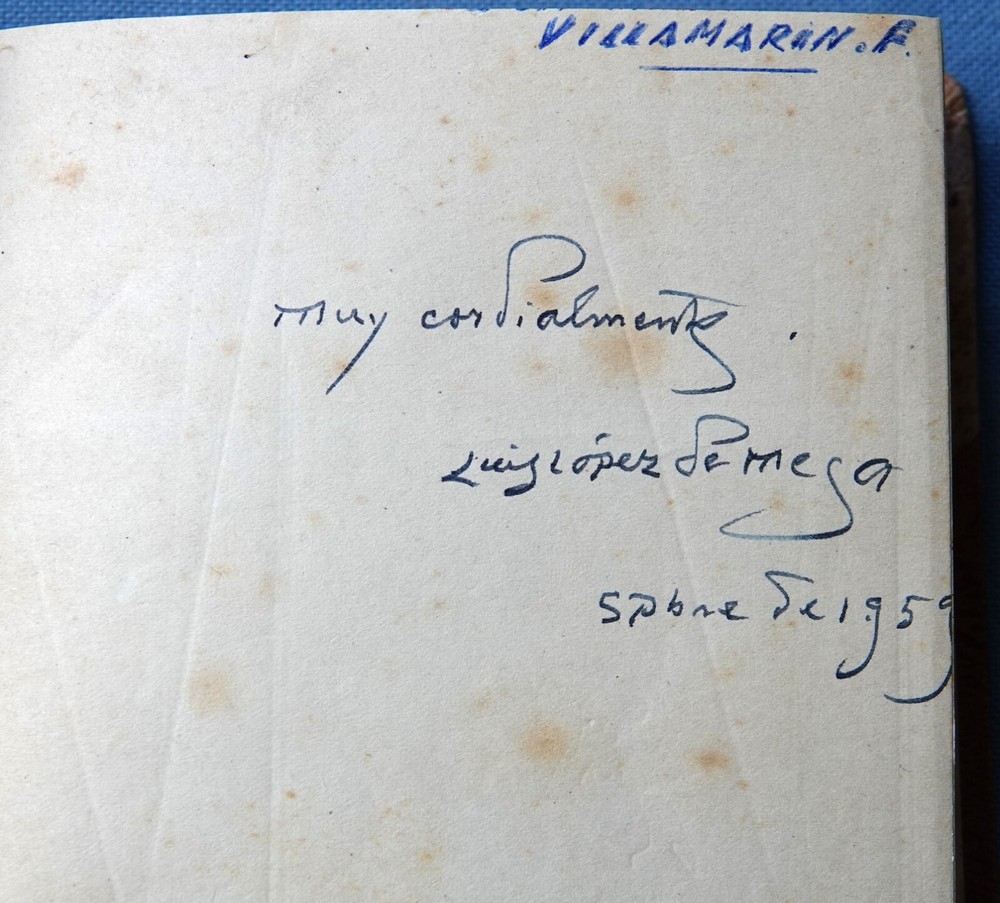 VILLAMARIN. F.
muy cordialmente.
Luis López de mesa
spbre de 1.959